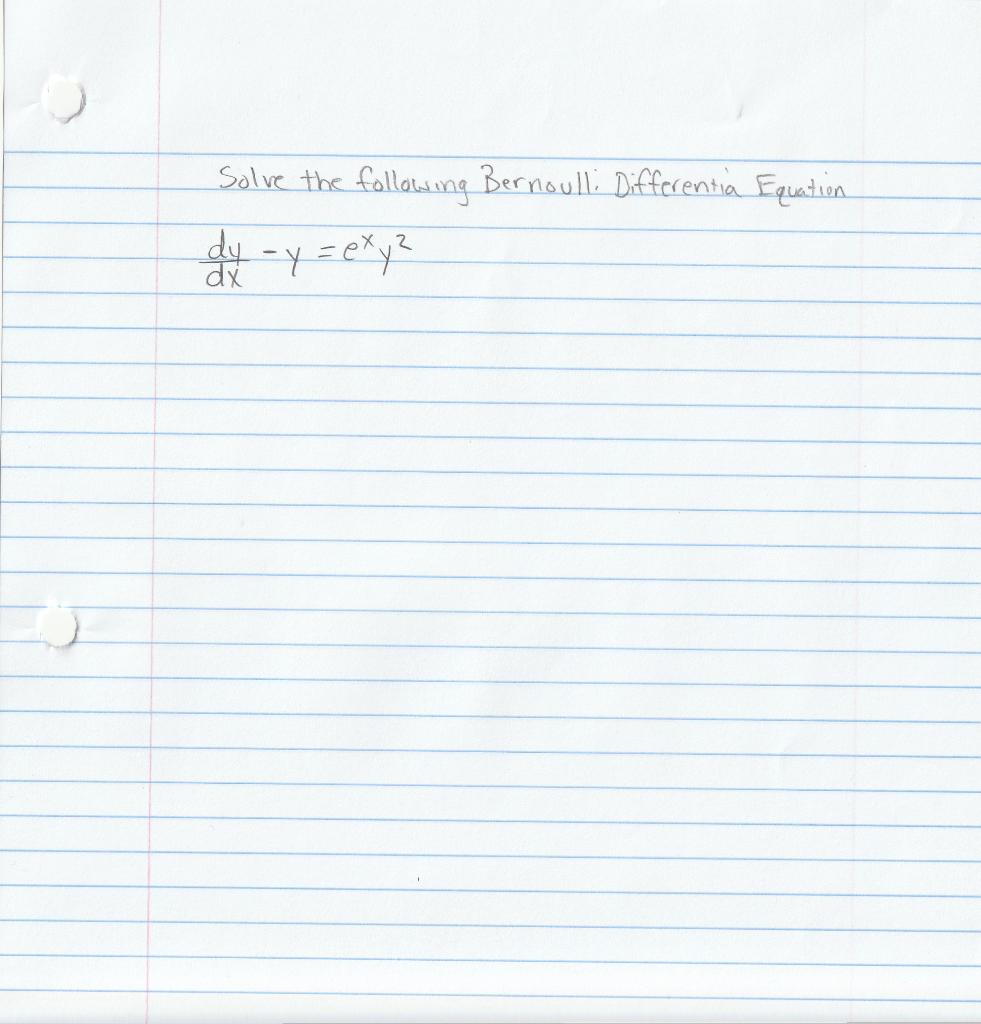 Solve the following Bernoulli Differentia Equation
dy/dx - y = eˣy²